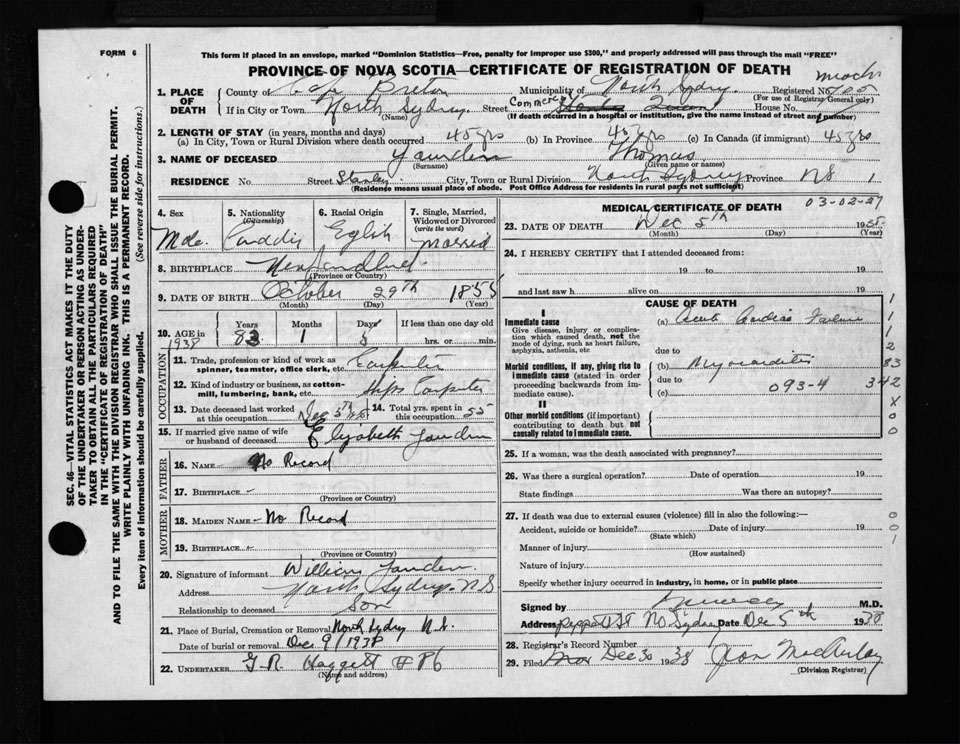 FORM 6
This form if placed in an envelope, marked "Dominion Statistics—Free, penalty for improper use $300," and properly addressed will pass through the mail "FREE"
PROVINCE OF NOVA SCOTIA—CERTIFICATE OF REGISTRATION OF DEATH
1. PLACE OF DEATH
County of Cape Breton Municipality of North Sydney Registered No.
(For use of Registrar General only)
If in City or Town North Sydney Street Commercial House No.
(Name) (If death occurred in a hospital or institution, give the name instead of street and number)
2. LENGTH OF STAY (in years, months and days)
(a) In City, Town or Rural Division where death occurred 45 yrs (b) In Province 45 yrs (c) In Canada (if immigrant) 45 yrs
3. NAME OF DECEASED Thomas
(Surname) (Given name or names)
RESIDENCE No. Street Stanley City, Town or Rural Division North Sydney Province N S 1
(Residence means usual place of abode. Post Office Address for residents in rural parts not sufficient)
4. Sex 5. Nationality (Citizenship) 6. Racial Origin 7. Single, Married, Widowed or Divorced (write the word)
Male Married
8. BIRTHPLACE Newfoundland
(Province or Country)
9. DATE OF BIRTH October 29th 1855
(Month) (Day) (Year)
10. AGE in 1938 Years Months Days If less than one day old
83 1 hrs. or min.
OCCUPATION
11. Trade, profession or kind of work as spinner, teamster, office clerk, etc. Carpenter
12. Kind of industry or business, as cotton-mill, lumbering, bank, etc. Ships Carpenter
13. Date deceased last worked at this occupation Dec 5th 14. Total yrs. spent in this occupation 55
15. If married give name of wife or husband of deceased Elizabeth
FATHER
16. NAME No Record
17. BIRTHPLACE -
(Province or Country)
MOTHER
18. MAIDEN NAME No Record
19. BIRTHPLACE -
(Province or Country)
20. Signature of informant William
Address North Sydney. N.S
Relationship to deceased Son
21. Place of Burial, Cremation or Removal North Sydney N.S.
Date of burial or removal Dec 9/1938
22. UNDERTAKER G. R. Haggett # 86
(Name and address)
MEDICAL CERTIFICATE OF DEATH
03-02-27
23. DATE OF DEATH Dec 5th 19
(Month) (Day) (Year)
24. I HEREBY CERTIFY that I attended deceased from:
19 to 19
and last saw h alive on 19
CAUSE OF DEATH
I
Immediate cause (a) Acute Cardiac Failure
Give disease, injury or complication which caused death, not the mode of dying, such as heart failure, asphyxia, asthenia, etc
due to
Morbid conditions, if any, giving rise to immediate cause (stated in order proceeding backwards from immediate cause).
(b) Myocarditis
due to 093-4
(c)
II
Other morbid conditions (if important) contributing to death but not causally related to immediate cause.
1
1
1
2
83
342
X
0
0
25. If a woman, was the death associated with pregnancy?
26. Was there a surgical operation? Date of operation 19
State findings Was there an autopsy?
27. If death was due to external causes (violence) fill in also the following:—
Accident, suicide or homicide? Date of injury 19
(State which)
Manner of injury
(How sustained)
Nature of injury
Specify whether injury occurred in industry, in home, or in public place
0
0
1
Signed by M.D.
Address Peppett St No Sydney Date Dec 5th 1938
28. Registrar's Record Number
29. Filed Dec 30 1938
(Division Registrar)
SEC. 46—VITAL STATISTICS ACT MAKES IT THE DUTY OF THE UNDERTAKER OR PERSON ACTING AS UNDERTAKER TO OBTAIN ALL THE PARTICULARS REQUIRED IN THE "CERTIFICATE OF REGISTRATION OF DEATH" AND TO FILE THE SAME WITH THE DIVISION REGISTRAR WHO SHALL ISSUE THE BURIAL PERMIT.
WRITE PLAINLY WITH UNFADING INK. THIS IS A PERMANENT RECORD.
Every item of information should be carefully supplied. (See reverse side for instructions.)